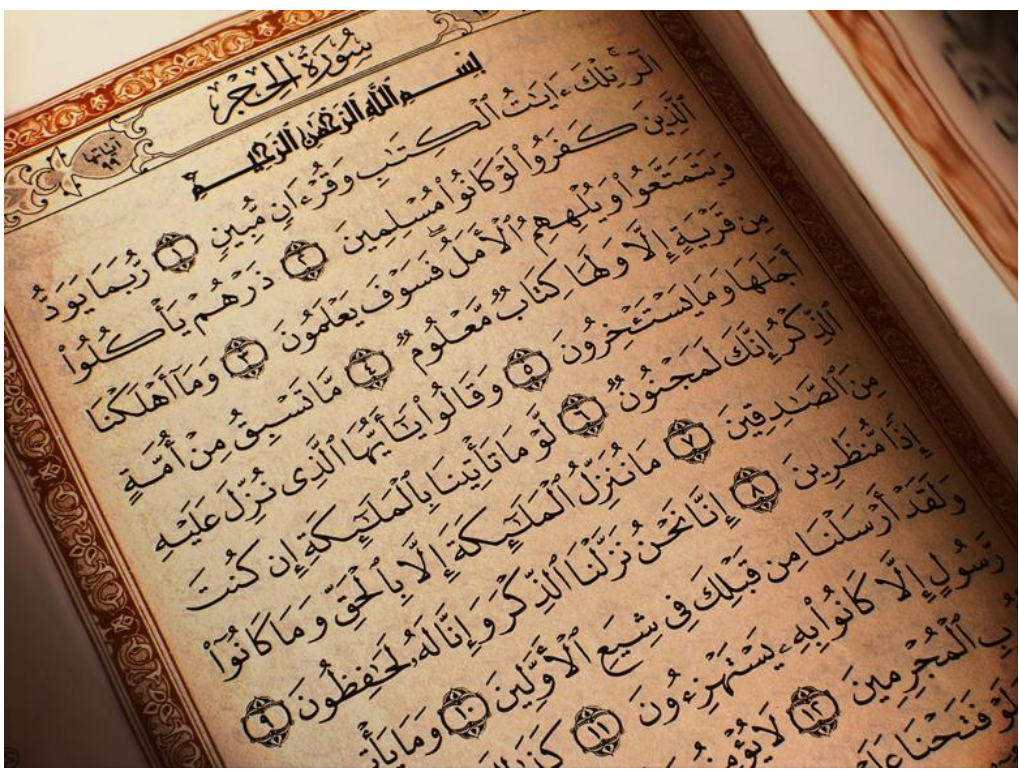 سُورَةُ الحِجْرِ
آيَاتُهَا ٩٩
بِسْمِ اللَّهِ الرَّحْمَٰنِ الرَّحِيمِ
الٓر ۚ تِلْكَ ءَايَٰتُ ٱلْكِتَٰبِ وَقُرْءَانٍ مُّبِينٍ ١ رُّبَمَا يَوَدُّ
ٱلَّذِينَ كَفَرُوا۟ لَوْ كَانُوا۟ مُسْلِمِينَ ٢ ذَرْهُمْ يَأْكُلُوا۟
وَيَتَمَتَّعُوا۟ وَيُلْهِهِمُ ٱلْأَمَلُ ۖ فَسَوْفَ يَعْلَمُونَ ٣ وَمَآ أَهْلَكْنَا
مِن قَرْيَةٍ إِلَّا وَلَهَا كِتَابٌ مَّعْلُومٌ ٤ مَّا تَسْبِقُ مِنْ أُمَّةٍ
أَجَلَهَا وَمَا يَسْتَـْٔخِرُونَ ٥ وَقَالُوا۟ يَٰٓأَيُّهَا ٱلَّذِى نُزِّلَ عَلَيْهِ
ٱلذِّكْرُ إِنَّكَ لَمَجْنُونٌ ٦ لَّوْ مَا تَأْتِينَا بِٱلْمَلَٰٓئِكَةِ إِن كُنتَ
مِنَ ٱلصَّٰدِقِينَ ٧ مَا نُنَزِّلُ ٱلْمَلَٰٓئِكَةَ إِلَّا بِٱلْحَقِّ وَمَا كَانُوٓا۟
إِذًا مُّنظَرِينَ ٨ إِنَّا نَحْنُ نَزَّلْنَا ٱلذِّكْرَ وَإِنَّا لَهُۥ لَحَٰفِظُونَ ٩
وَلَقَدْ أَرْسَلْنَا مِن قَبْلِكَ فِى شِيَعِ ٱلْأَوَّلِينَ ١٠ وَمَا يَأْتِ
رَّسُولٍ إِلَّا كَانُوا۟ بِهِۦ يَسْتَهْزِءُونَ ١١
ٱلْمُجْرِمِينَ ١٢ لَا
وَلَوْ فَتَحْنَا